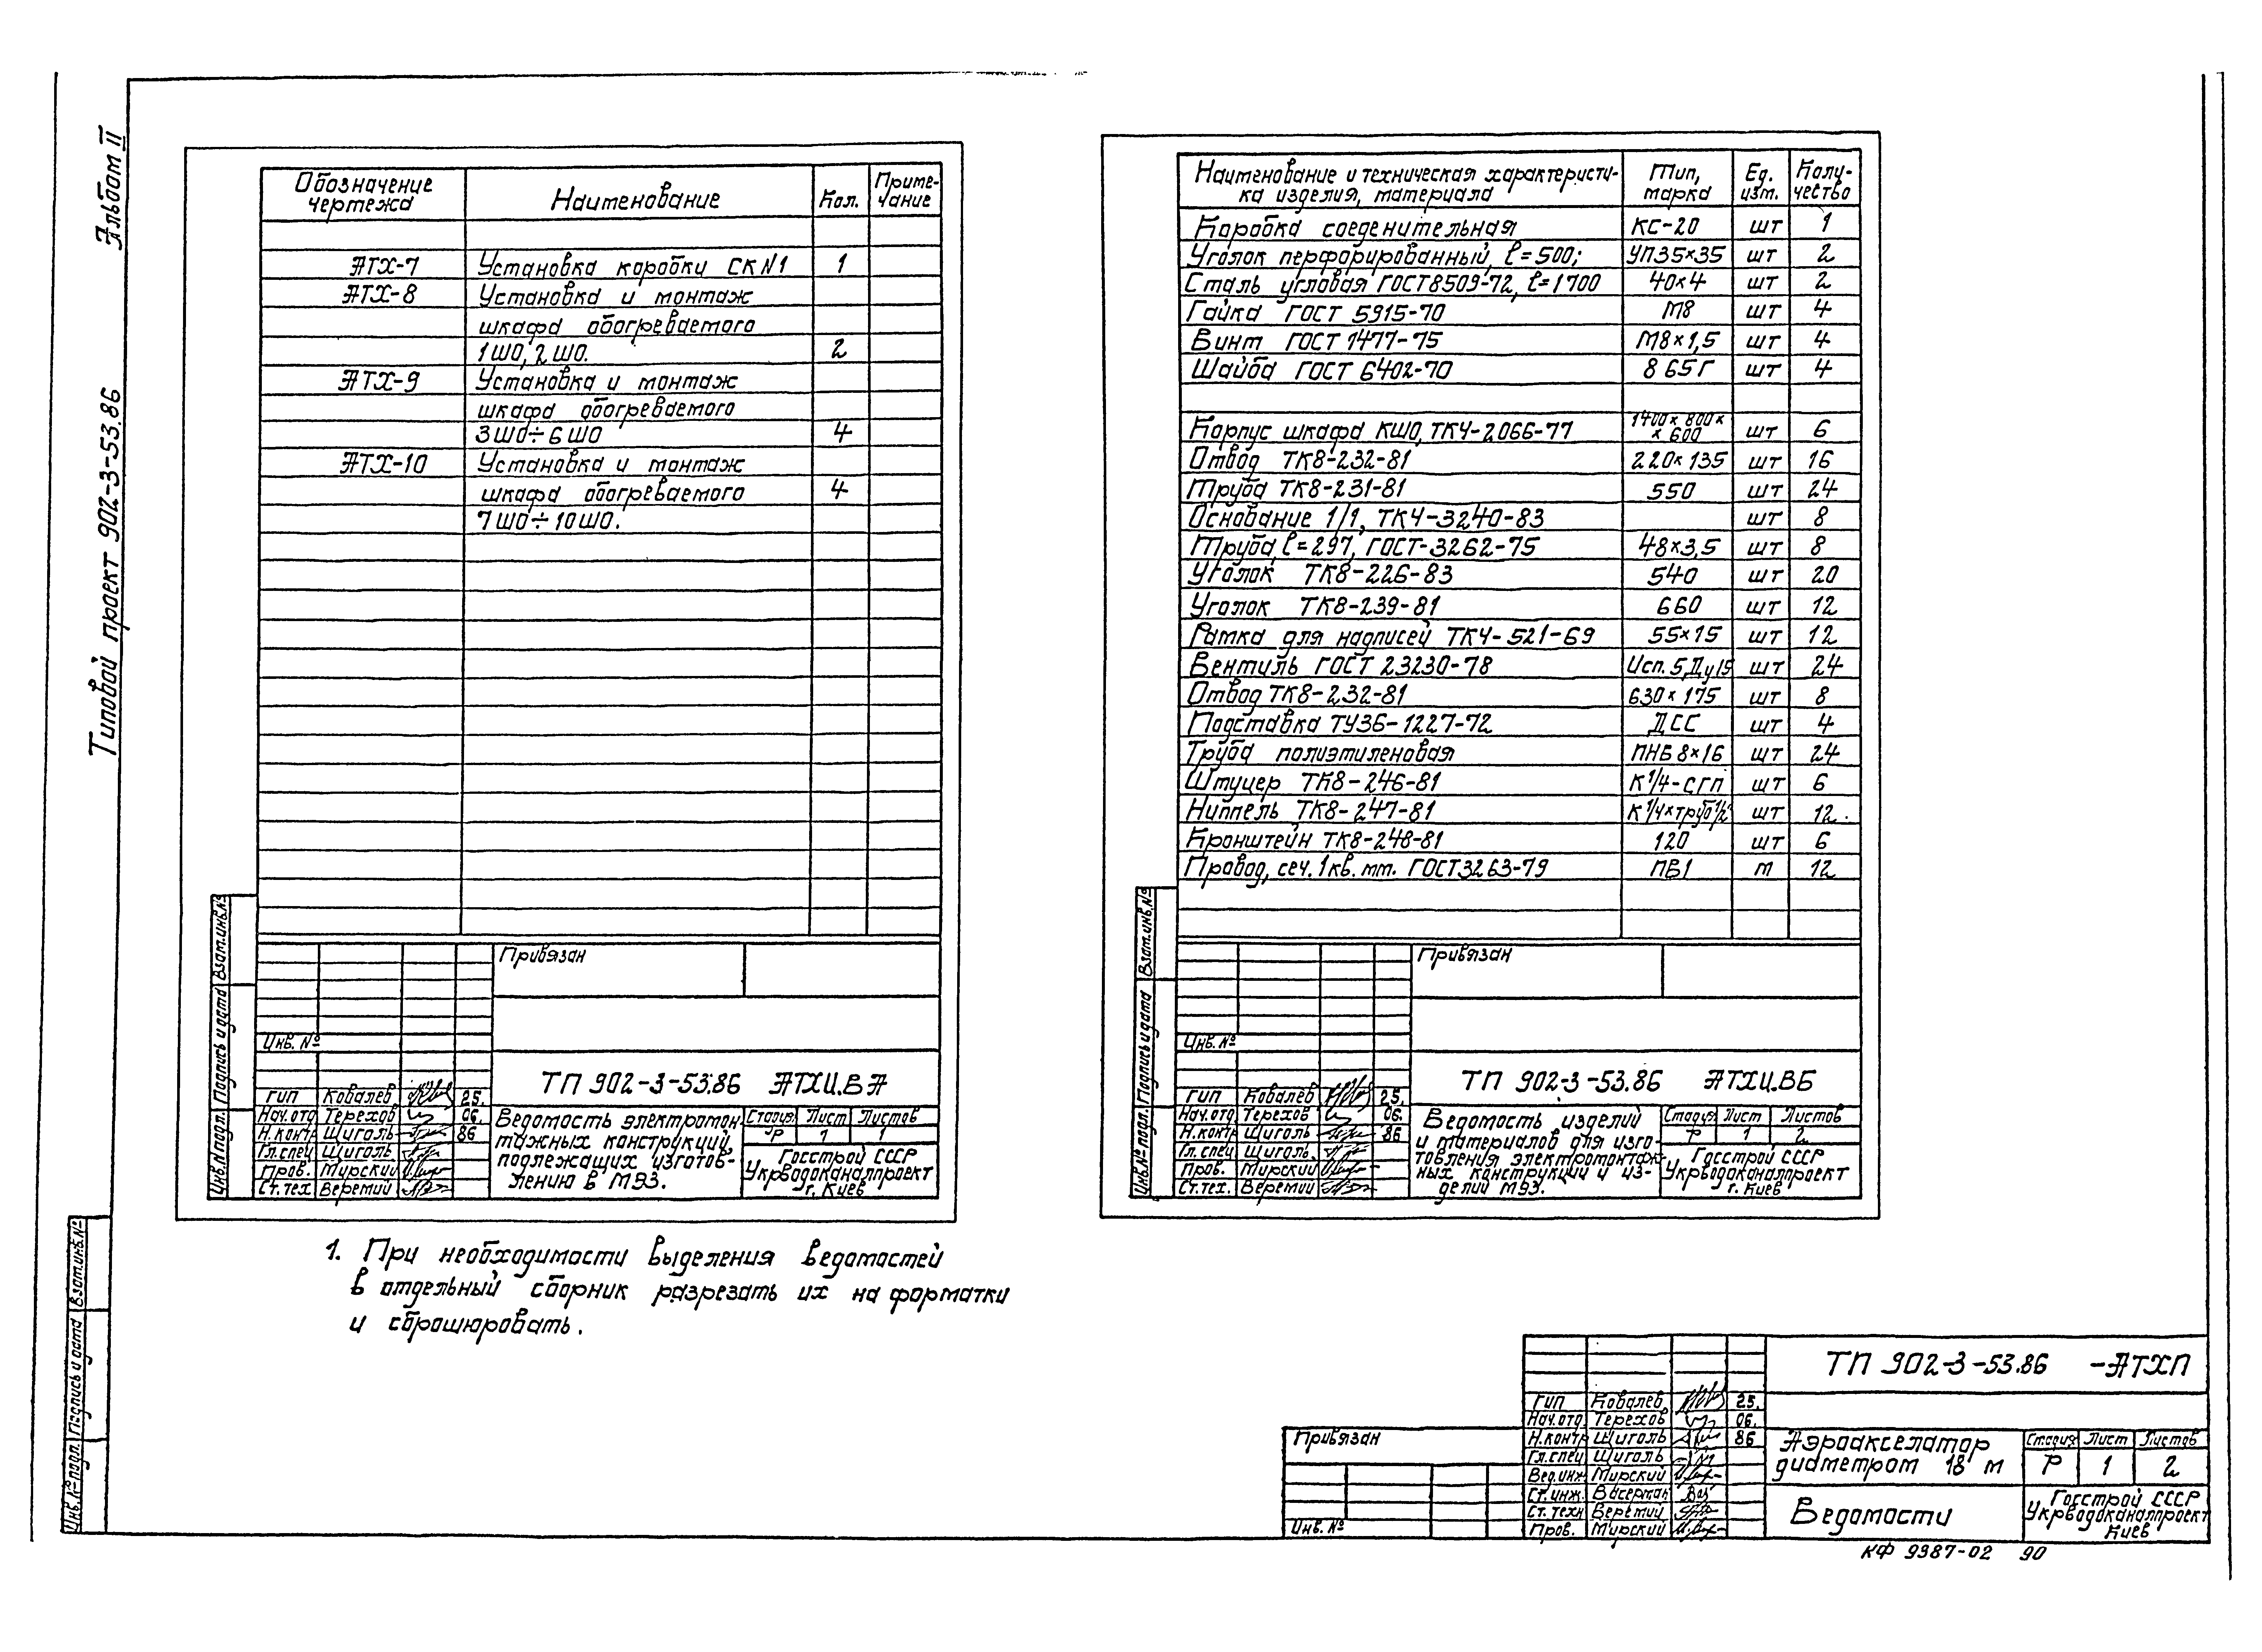 Альбом II
Типовой проект 902-3-53.86
Обозначение чертежа | Наименование | Кол. | Приме-чание
АТХ-7 | Установка коробки СК№1 | 1
АТХ-8 | Установка и монтаж
шкафа обогреваемого
1ШО, 2ШО. | 2
АТХ-9 | Установка и монтаж
шкафа обогреваемого
3ШО÷6ШО | 4
АТХ-10 | Установка и монтаж
шкафа обогреваемого | 4
7ШО÷10ШО.
Привязан
Инв. №
Взам.инв.№
Подпись и дата
Инв.№ подл.
ТП 902-3-53.86 АТХИ.ВА
ГИП Ковалев 25.
Нач.отд. Терехов 06.
Н.контр Щиголь 86
Гл.спец Щиголь
Пров. Мирский
Ст.тех Веремий
Ведомость электромон-
тажных конструкций,
подлежащих изготов-
лению в МЭЗ.
Стадия Лист Листов
Р 1 1
Госстрой СССР
Укрводоканалпроект
г. Киев
Наименование и техническая характеристи-ка изделия, материала | Тип, марка | Ед. изм. | Коли-чество
Коробка соеденительная | КС-20 | шт | 1
Уголок перфорированный, ℓ=500; | УП35×35 | шт | 2
Сталь угловая ГОСТ8509-72, ℓ=1700 | 40×4 | шт | 2
Гайка ГОСТ 5915-70 | М8 | шт | 4
Винт ГОСТ 1477-75 | М8×1,5 | шт | 4
Шайба ГОСТ 6402-70 | 8 65Г | шт | 4
Корпус шкафа КШО, ТК4-2066-77 | 1400×800××600 | шт | 6
Отвод ТК8-232-81 | 220×135 | шт | 16
Труба ТК8-231-81 | 550 | шт | 24
Основание 1/1, ТК4-3240-83 | шт | 8
Труба, ℓ=297, ГОСТ-3262-75 | 48×3,5 | шт | 8
Уголок ТК8-226-83 | 540 | шт | 20
Уголок ТК8-239-81 | 660 | шт | 12
Рамка для надписей ТК4-521-69 | 55×15 | шт | 12
Вентиль ГОСТ 23230-78 | Исп. 5, Ду15 | шт | 24
Отвод ТК8-232-81 | 630×175 | шт | 8
Подставка ТУ36-1227-72 | ДСС | шт | 4
Труба полиэтиленовая | ПНБ 8×16 | шт | 24
Штуцер ТК8-246-81 | К1/4-СГП | шт | 6
Ниппель ТК8-247-81 | К1/4×труб1/2 | шт | 12.
Кронштейн ТК8-248-81 | 120 | шт | 6
Провод, сеч. 1кв. мм. ГОСТ3263-79 | ПВ1 | м | 12
Привязан
Инв. №
Взам.инв.№
Подпись и дата
Инв.№ подл.
ТП 902-3-53.86 АТХИ.ВБ
ГИП Ковалев 25.
Нач.отд. Терехов 06.
Н.контр Щиголь 86
Гл.спец Щиголь.
Пров. Мирский
Ст.тех. Веремий
Ведомость изделий
и материалов для изго-
товления электромонтаж-
ных конструкций и из-
делий МЭЗ.
Стадия Лист Листов
Р 1 2
Госстрой СССР
Укрводоканалпроект
г. Киев
1. При необходимости выделения ведомостей
в отдельный сборник разрезать их на форматки
и сброшюровать.
Взам.инв.№
Подпись и дата
Инв.№ подл.
Привязан
Инв. №
ТП 902-3-53.86 -АТХП
ГИП Ковалев 25.
Нач.отд. Терехов 06.
Н.контр Щиголь 86
Гл.спец Щиголь
Вед.инж. Мирский
Ст.инж. Васерман
Ст.техн Веремий
Пров. Мирский
Аэроакселатор
диаметром 18 м
Стадия Лист Листов
Р 1 2
Ведомости
Госстрой СССР
Укрводоканалпроект
Киев
КФ 9387-02 90